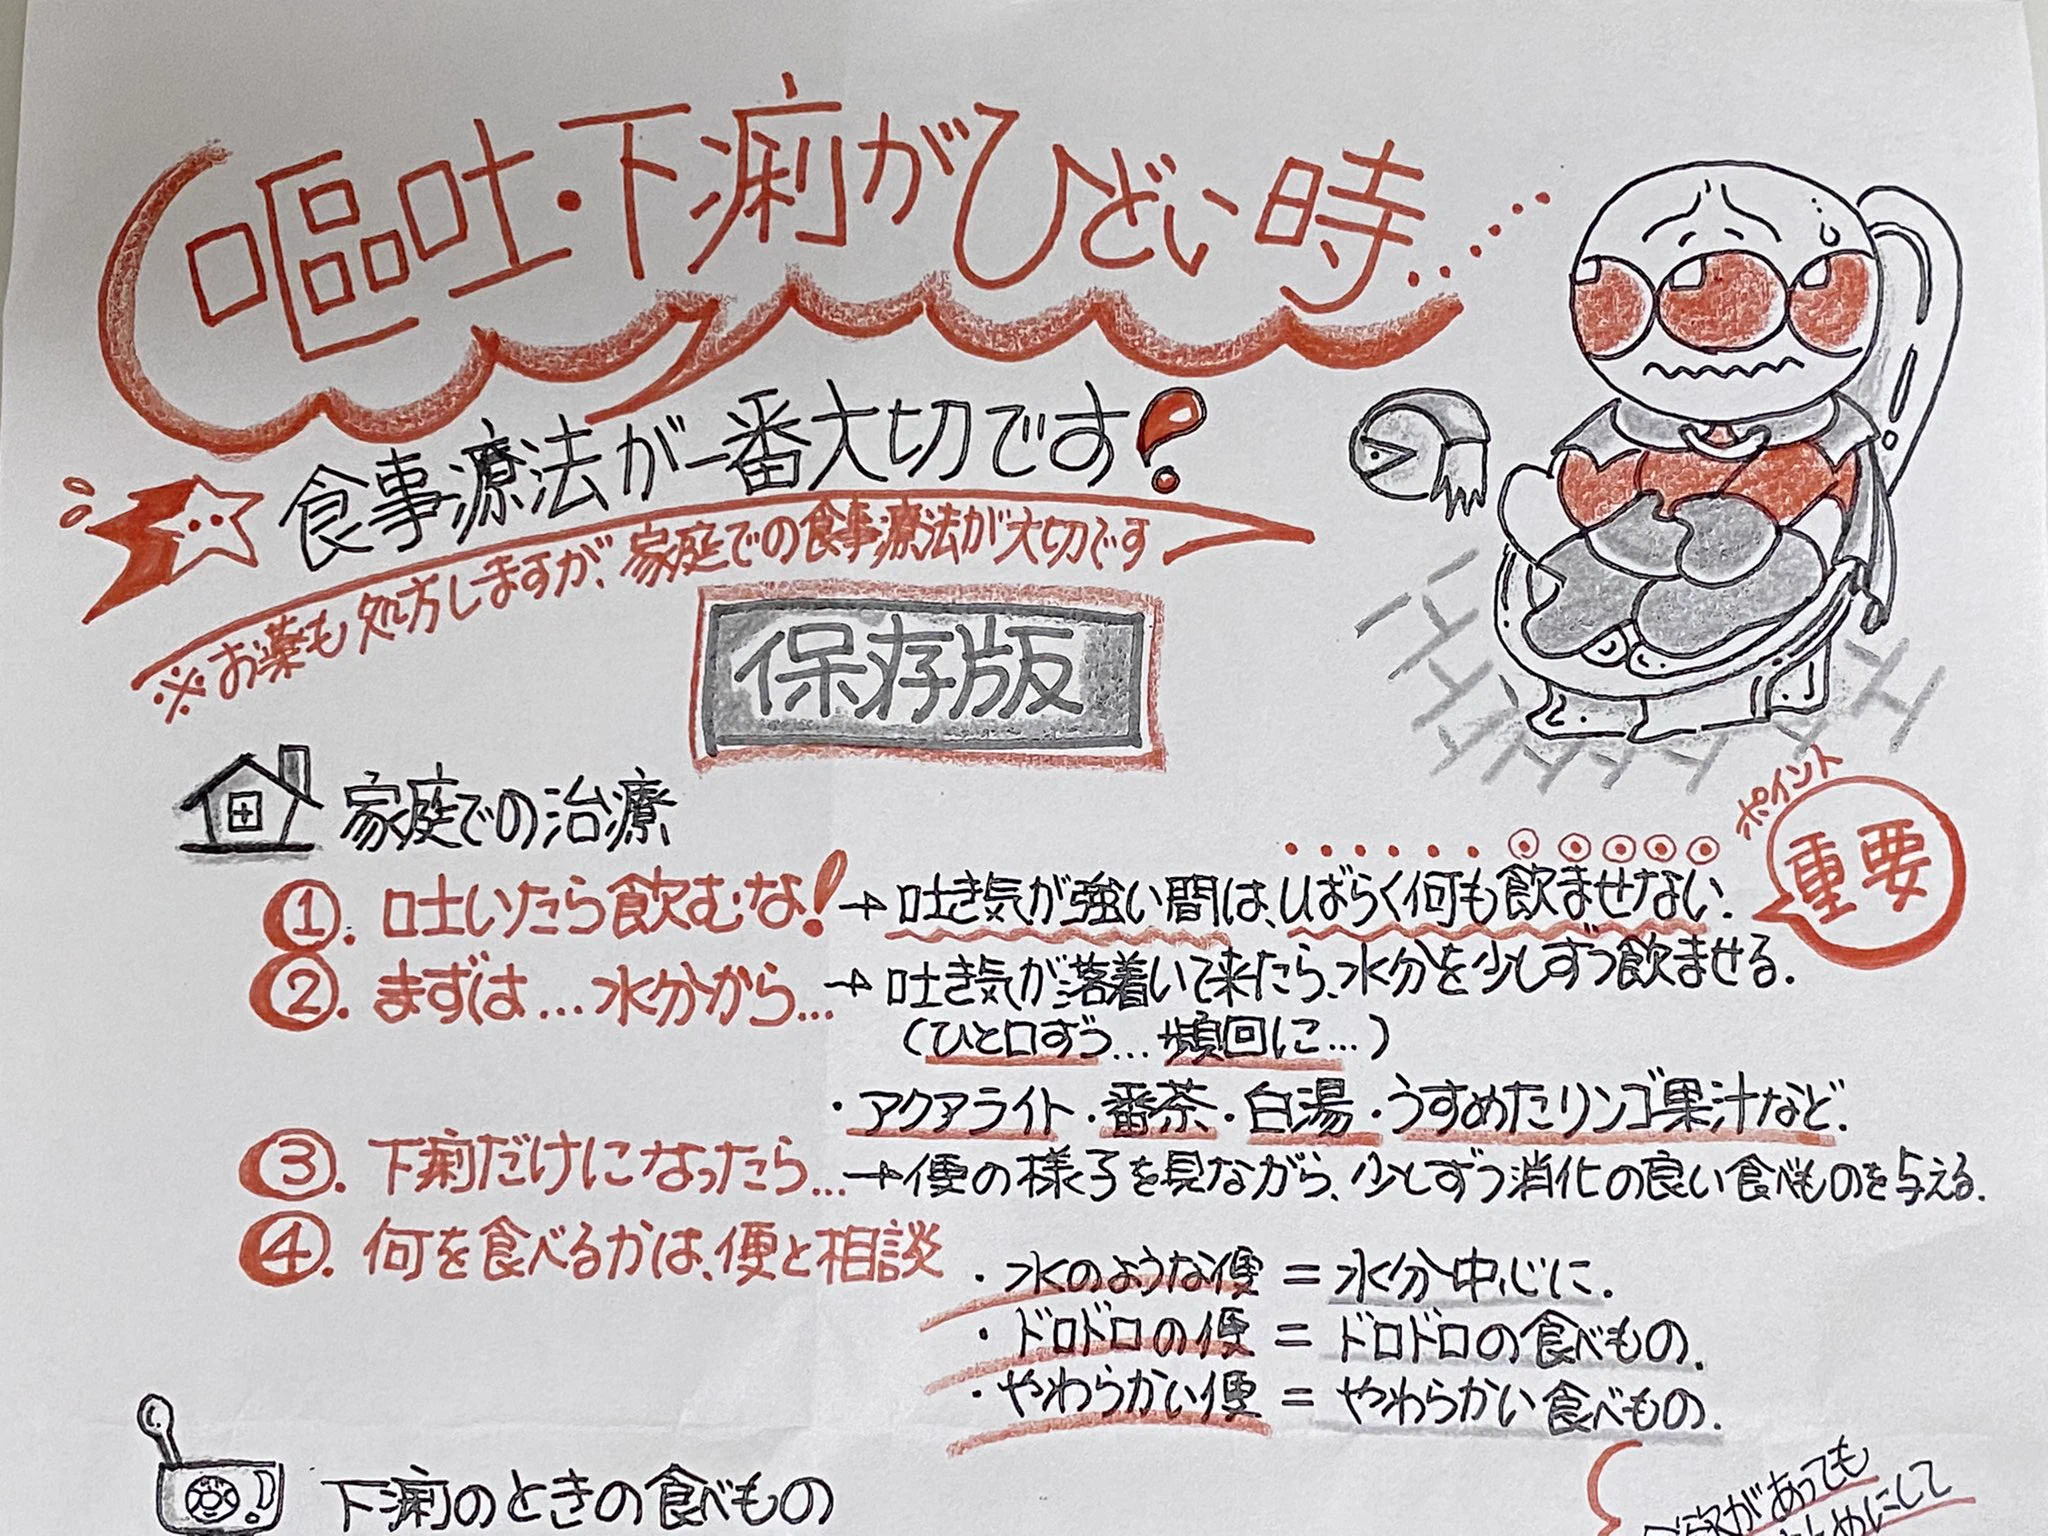 嘔吐・下痢がひどい時……
食事療法が一番大切です!
※お薬も処方しますが、家庭での食事療法が大切です
保存版
家庭での治療
ポイント
重要
①. 吐いたら飲むな!→吐き気が強い間は、しばらく何も飲ませない.
②. まずは…水分から…→吐き気が落着いて来たら、水分を少しずつ飲ませる.
(ひと口ずつ…頻回に…)
・アクアライト・番茶・白湯・うすめたリンゴ果汁など.
③. 下痢だけになったら…→便の様子を見ながら、少しずつ消化の良い食べものを与える.
④. 何を食べるかは、便と相談
・水のような便=水分中心に.
・ドロドロの便=ドロドロの食べもの.
・やわらかい便=やわらかい食べもの.
下痢のときの食べもの
があっても
にして